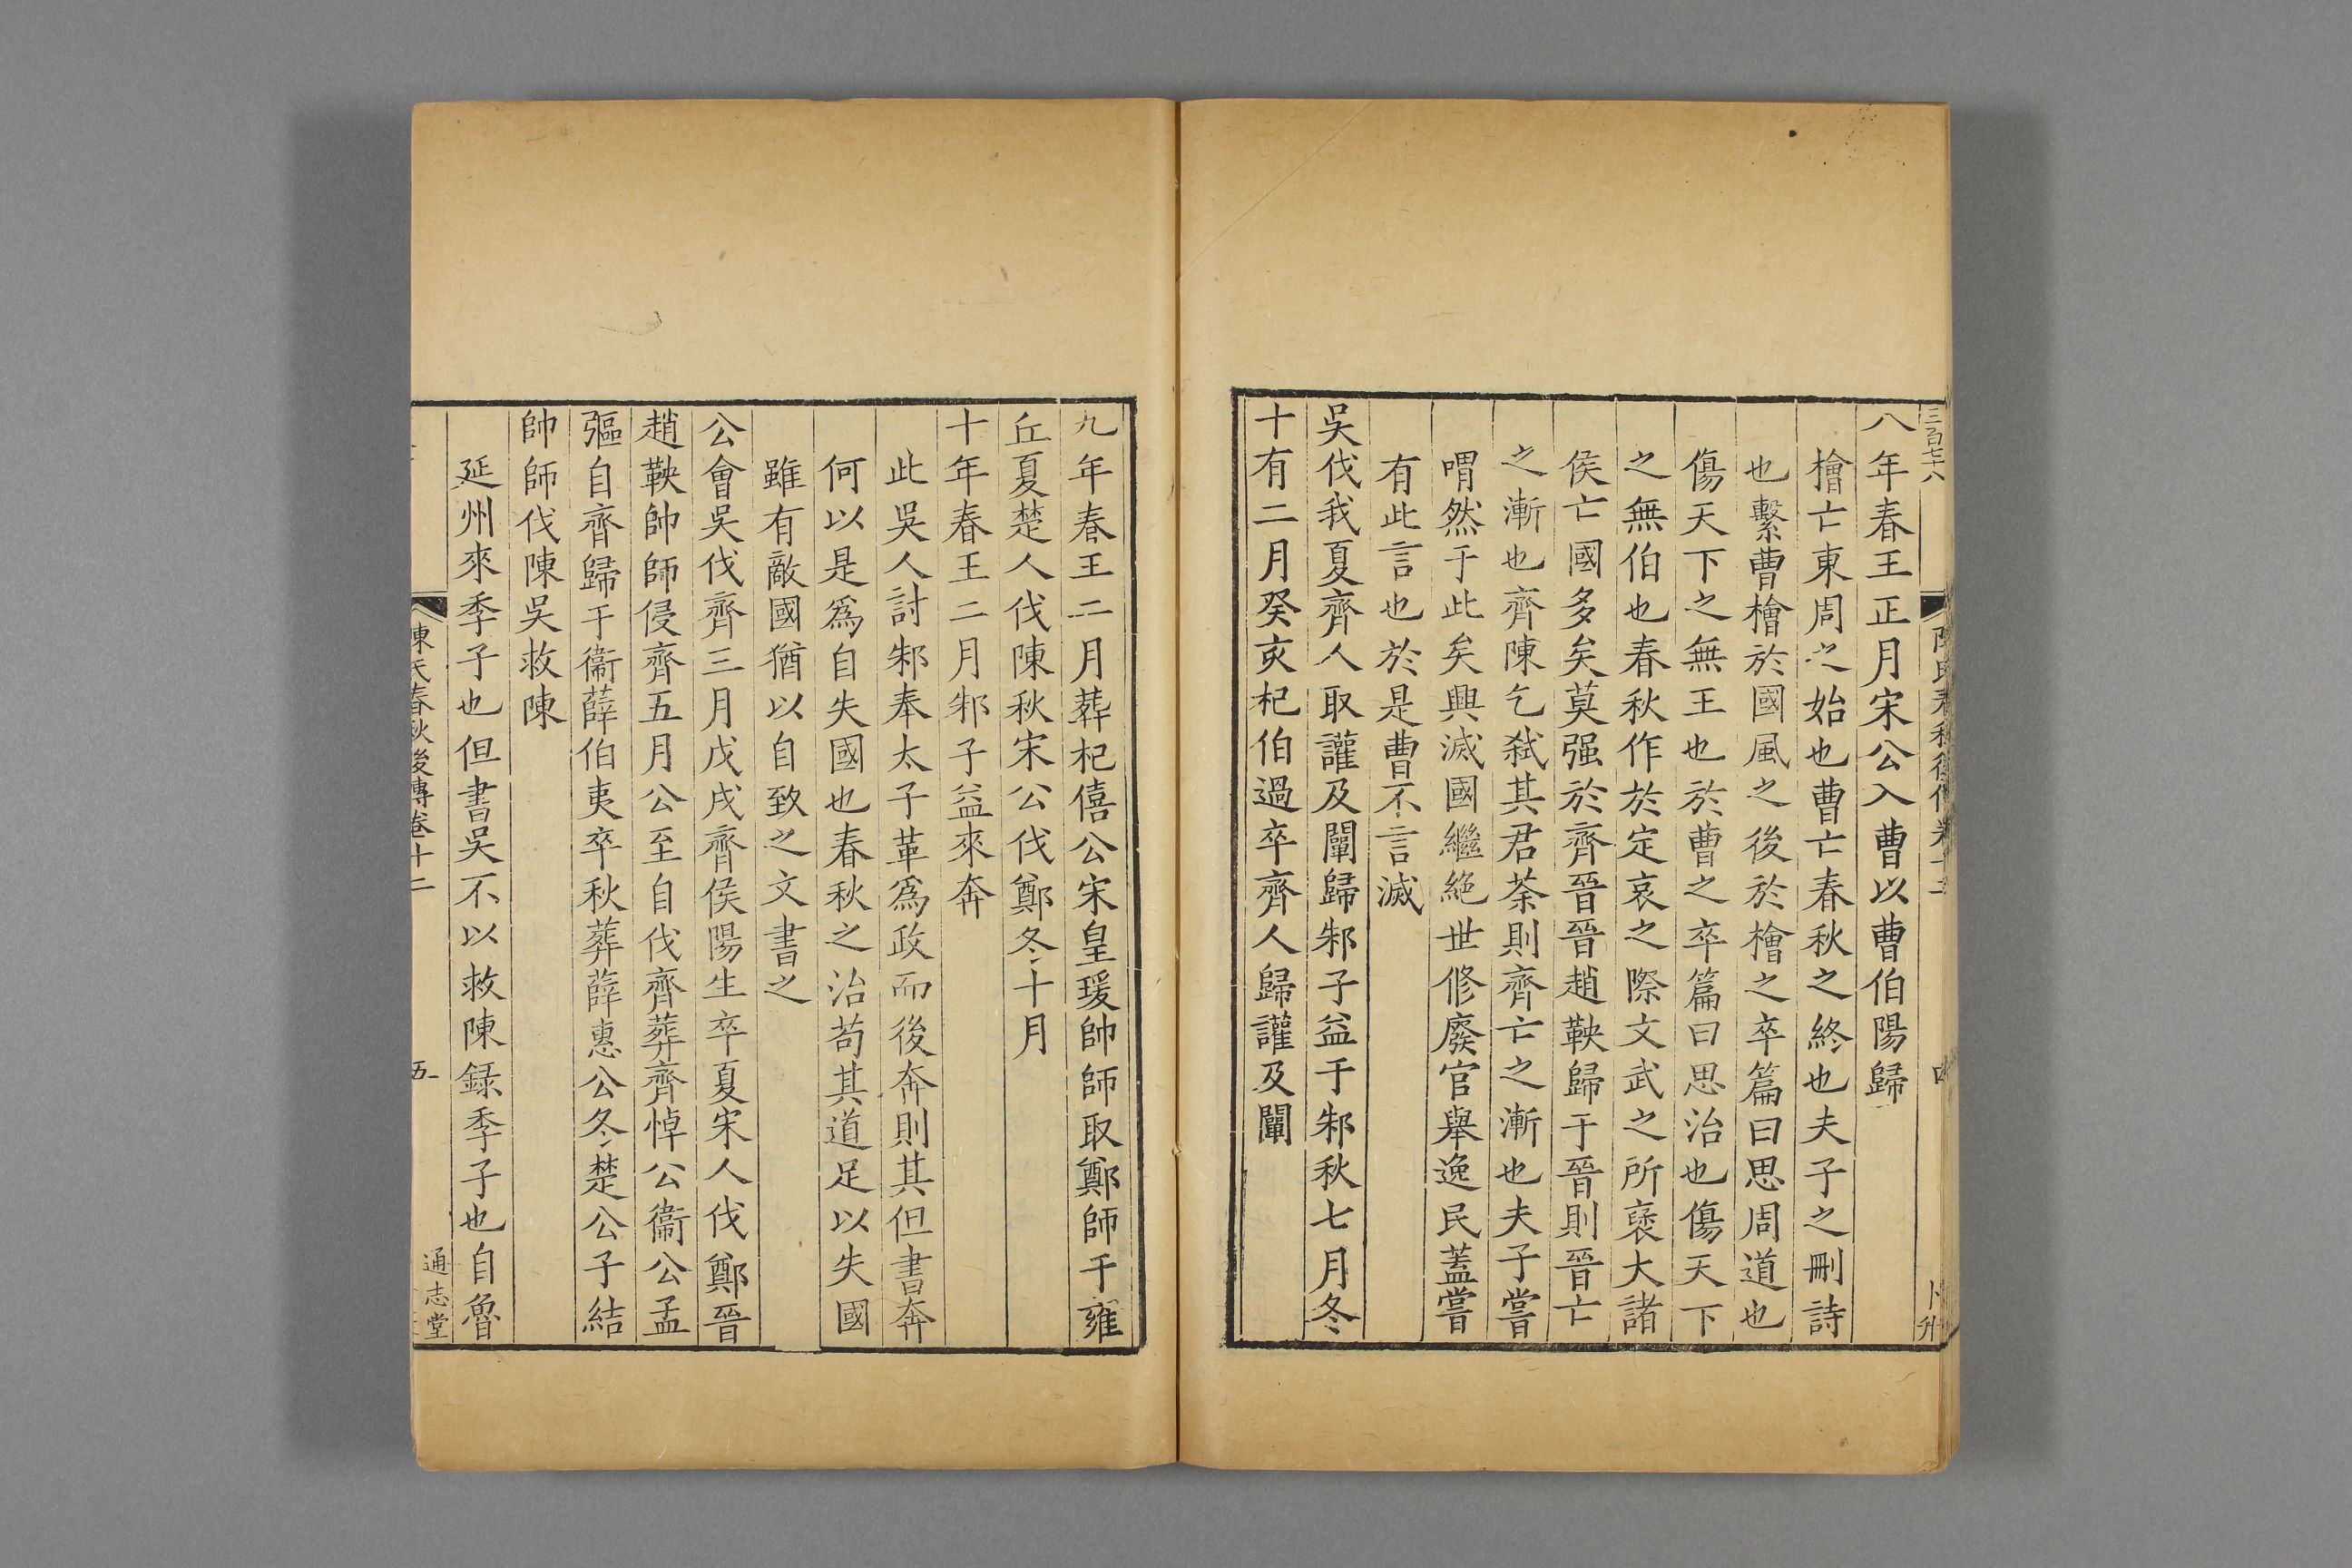 三百七十八
陳氏春秋後傳卷十二
四
卜升
八年春王正月宋公入曹以曹伯陽歸
檜亡東周之始也曹亡春秋之終也夫子之刪詩
也繫曹檜於國風之後於檜之卒篇曰思周道也
傷天下之無王也於曹之卒篇曰思治也傷天下
之無伯也春秋作於定哀之際文武之所襃大諸
侯亡國多矣莫强於齊晉晉趙鞅歸于晉則晉亡
之漸也齊陳乞弑其君荼則齊亡之漸也夫子嘗
喟然于此矣興滅國繼絶世修廢官舉逸民蓋嘗
有此言也於是曹不言滅
吳伐我夏齊人取讙及闡歸邾子益于邾秋七月冬
十有二月癸亥杞伯過卒齊人歸讙及闡
九年春王二月葬杞僖公宋皇瑗帥師取鄭師于雍
丘夏楚人伐陳秋宋公伐鄭冬十月
十年春王二月邾子益來奔
此吳人討邾奉太子革爲政而後奔則其但書奔
何以是爲自失國也春秋之治苟其道足以失國
雖有敵國猶以自致之文書之
公會吳伐齊三月戊戌齊侯陽生卒夏宋人伐鄭晉
趙鞅帥師侵齊五月公至自伐齊葬齊悼公衞公孟
彄自齊歸于衞薛伯夷卒秋葬薛惠公冬楚公子結
帥師伐陳吳救陳
延州來季子也但書吳不以救陳録季子也自魯
陳氏春秋後傳卷十二
五
通志堂